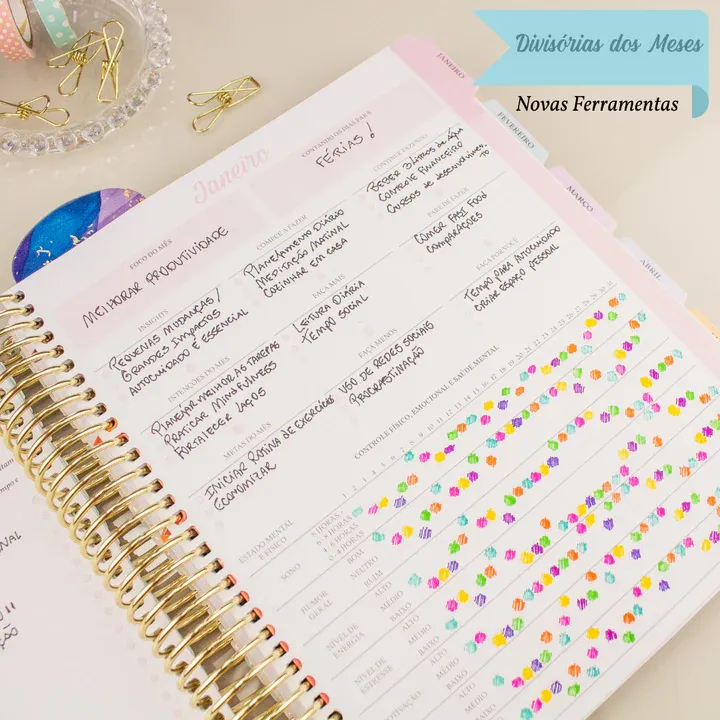 Divisórias dos Meses
Novas Ferramentas
JANEIRO
FEVEREIRO
MARÇO
ABRIL
Janeiro
CONTANDO OS DIAS PARA
FÉRIAS!
FOCO DO MÊS
MELHORAR PRODUTIVIDADE
COMECE A FAZER
PLANEJAMENTO DIÁRIO
MEDITAÇÃO MATINAL
COZINHAR EM CASA
CONTINUE FAZENDO
BEBER 3 LITROS DE ÁGUA
CONTROLE FINANCEIRO
CURSOS DE DESENVOLVIMEN-
TO
INSIGHTS
PEQUENAS MUDANÇAS/
GRANDES IMPACTOS
AUTOCUIDADO É ESSENCIAL
FAÇA MAIS
LEITURA DIÁRIA
TEMPO SOCIAL
PARE DE FAZER
COMER FAST FOOD
COMPARAÇÕES
INTENÇÕES DO MÊS
PLANEJAR MELHOR AS TAREFAS
PRATICAR MINDFULNESS
FORTALECER LAÇOS
FAÇA MENOS
USO DE REDES SOCIAIS
PROCRASTINAÇÃO
FAÇA POR VOCÊ
TEMPO PARA AUTOCUIDADO
CRIAR ESPAÇO PESSOAL
METAS DO MÊS
INICIAR ROTINA DE EXERCÍCIOS
ECONOMIZAR
CONTROLE FÍSICO, EMOCIONAL E SAÚDE MENTAL
1 2 3 4 5 6 7 8 9 10 11 12 13 14 15 16 17 18 19 20 21 22 23 24 25 26 27 28 29 30 31
ESTADO MENTAL
E FÍSICO
SONO
8 HORAS
6 - 8 HORAS
4 - 6 HORAS
0 - 4 HORAS
HUMOR
GERAL
BOM
NEUTRO
RUIM
NÍVEL DE
ENERGIA
ALTO
MÉDIO
BAIXO
NÍVEL DE
ESTRESSE
ALTO
MÉDIO
BAIXO
ALTO
MÉDIO